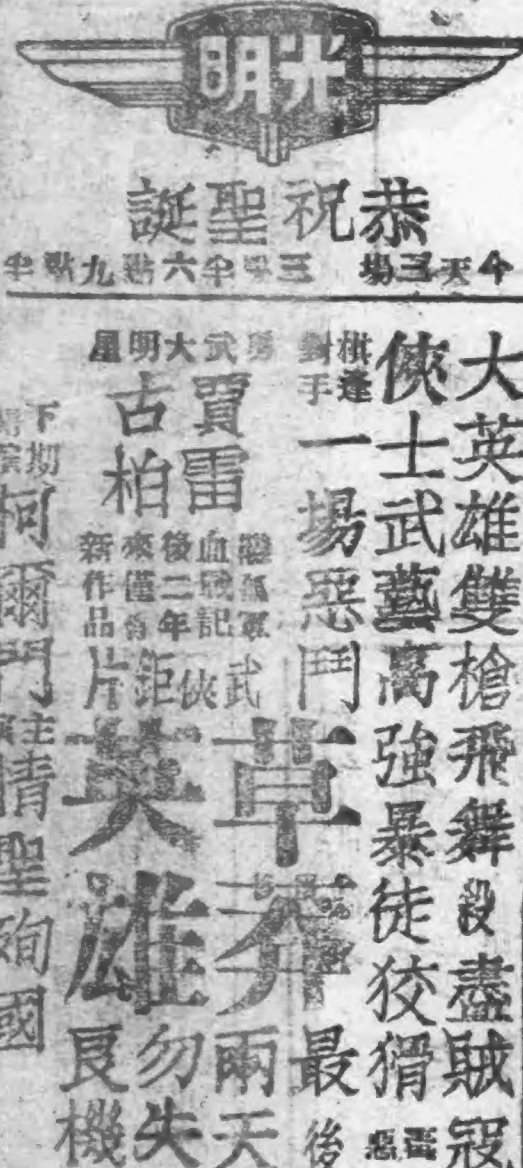 光明
恭祝聖誕
今天三場 三點半 六點半 九點半
大英雄雙槍飛舞殺盡賊寇
俠士武藝高強暴徒狡猾
棋逢對手一場惡鬥
武大明星
賈雷古柏
血戰記後二年來僅有新作品
武俠鉅片
草莽英雄
最後兩天勿失良機
下期
柯爾門主演
情聖殉國